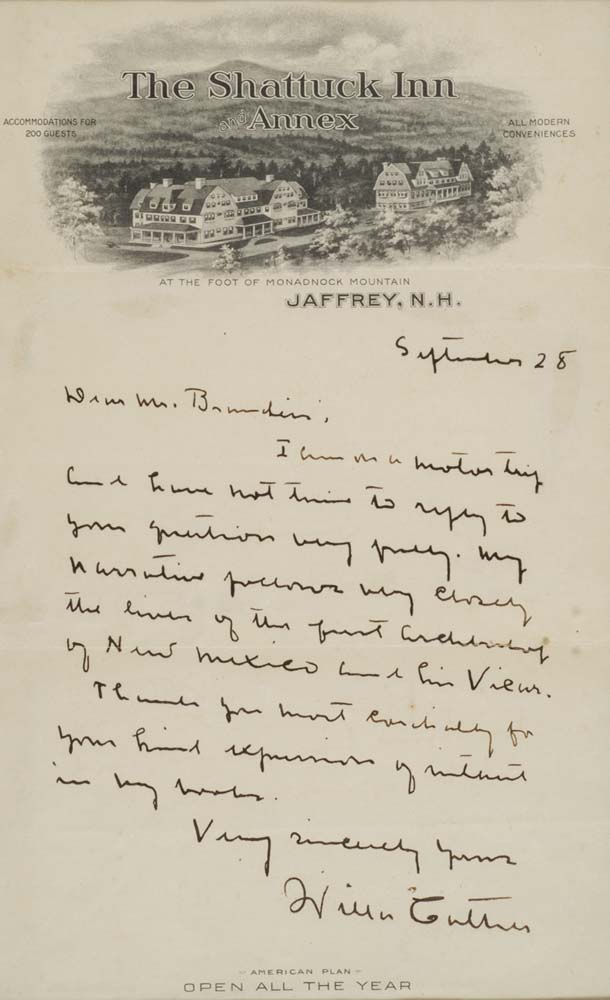 The Shattuck Inn
and Annex
ACCOMMODATIONS FOR
200 GUESTS
ALL MODERN
CONVENIENCES
AT THE FOOT OF MONADNOCK MOUNTAIN
JAFFREY, N.H.
September 28
Dear Mr.
I am on a motor trip
and have not time to reply to
your question very fully. My
narrative follows very closely
the lives of the first Archbishop
of New Mexico and his Vicar.
Thank you most cordially for
your kind expression of interest
in my books.
Very sincerely yours
Willa Cather
AMERICAN PLAN
OPEN ALL THE YEAR